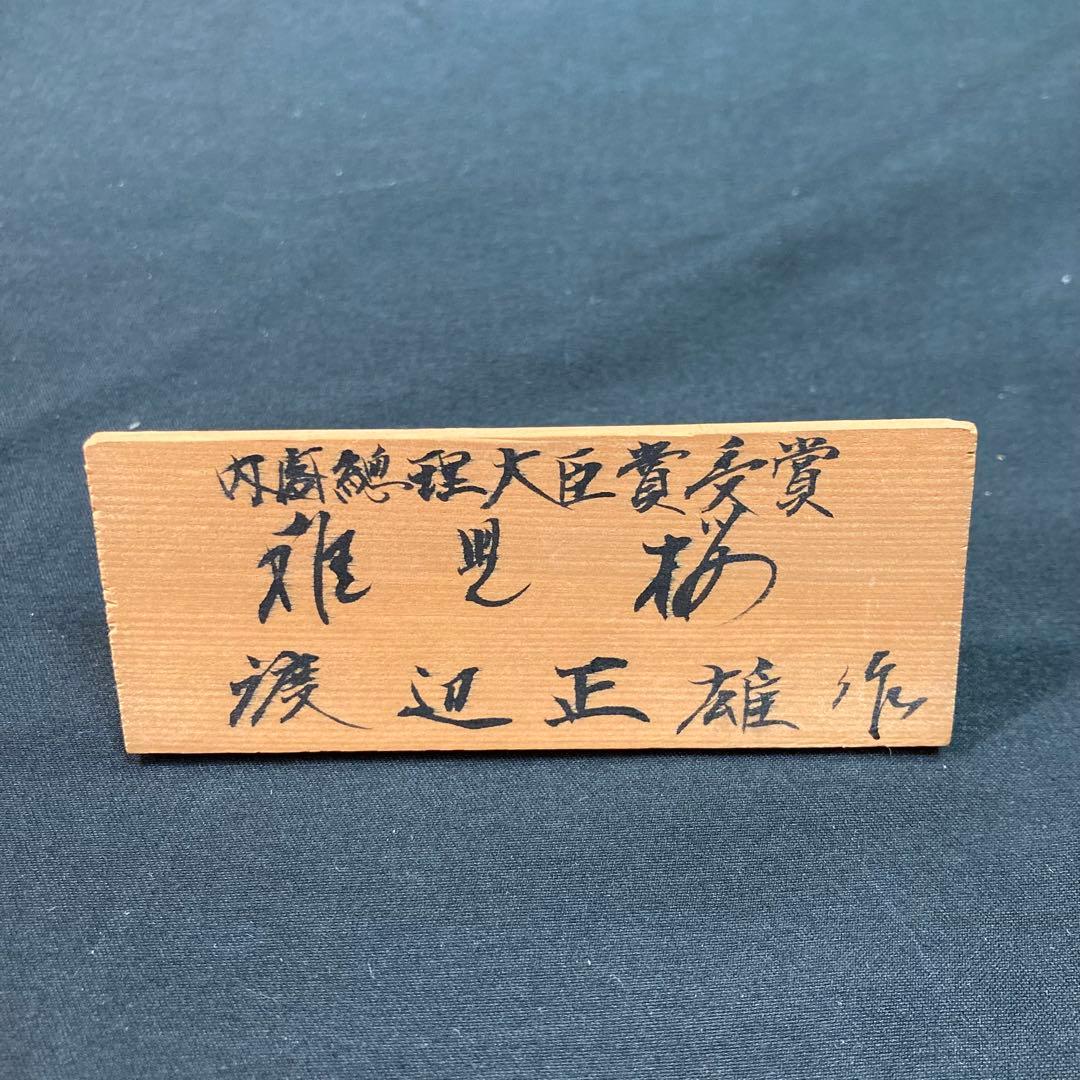 内閣總理大臣賞受賞
稚児桜
渡辺正雄作